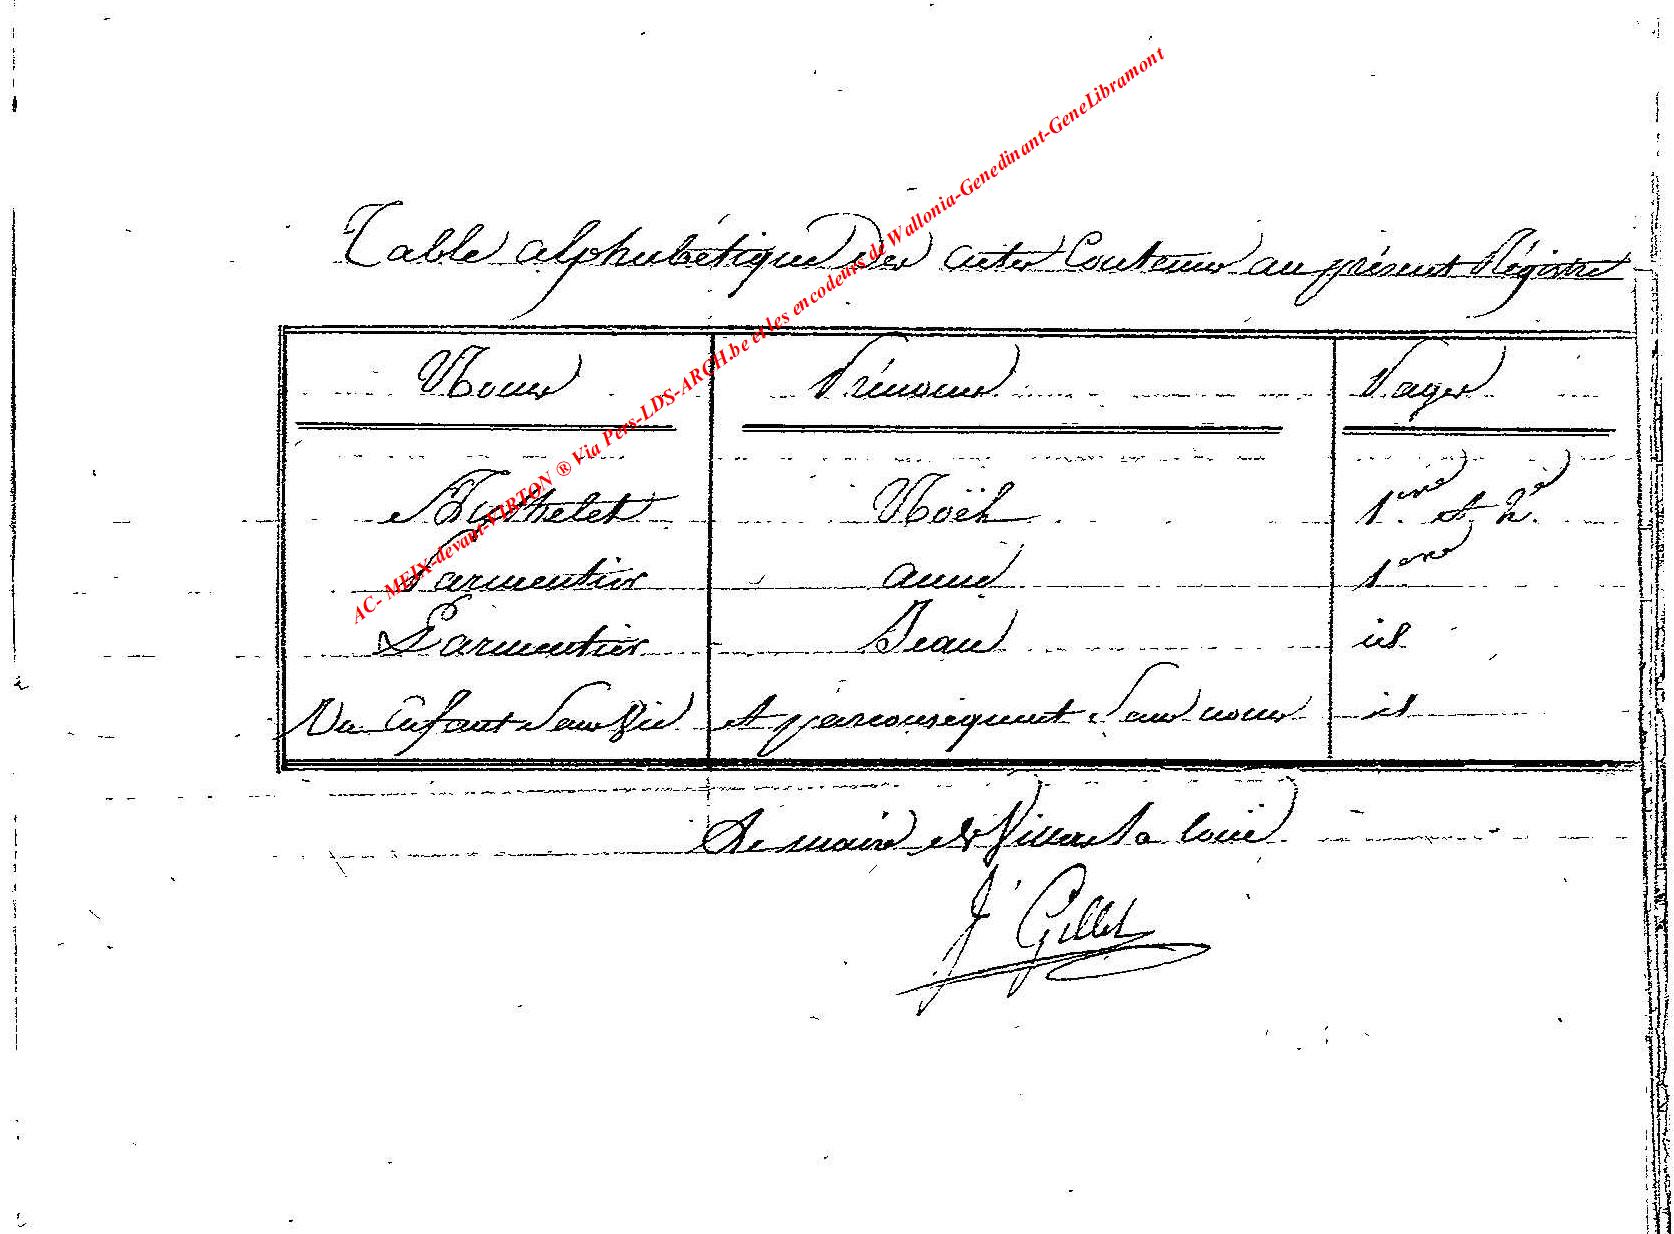 AC- MEIX-devant-VIRTON ® Via Pers-LDS-ARCH.be et les encodeurs de Wallonia-Genedinant-GeneLibramont
Table alphabétique Des actes Contenus au présent Régistre
Noms Prénoms Pages
Noël 1ere et 2e
Parmentier anne 1ere
Parmentier Jean id
Un Enfant Sans Vie et parconséquent Sans nom id
Le maire de Villers la loüe
J Gillet